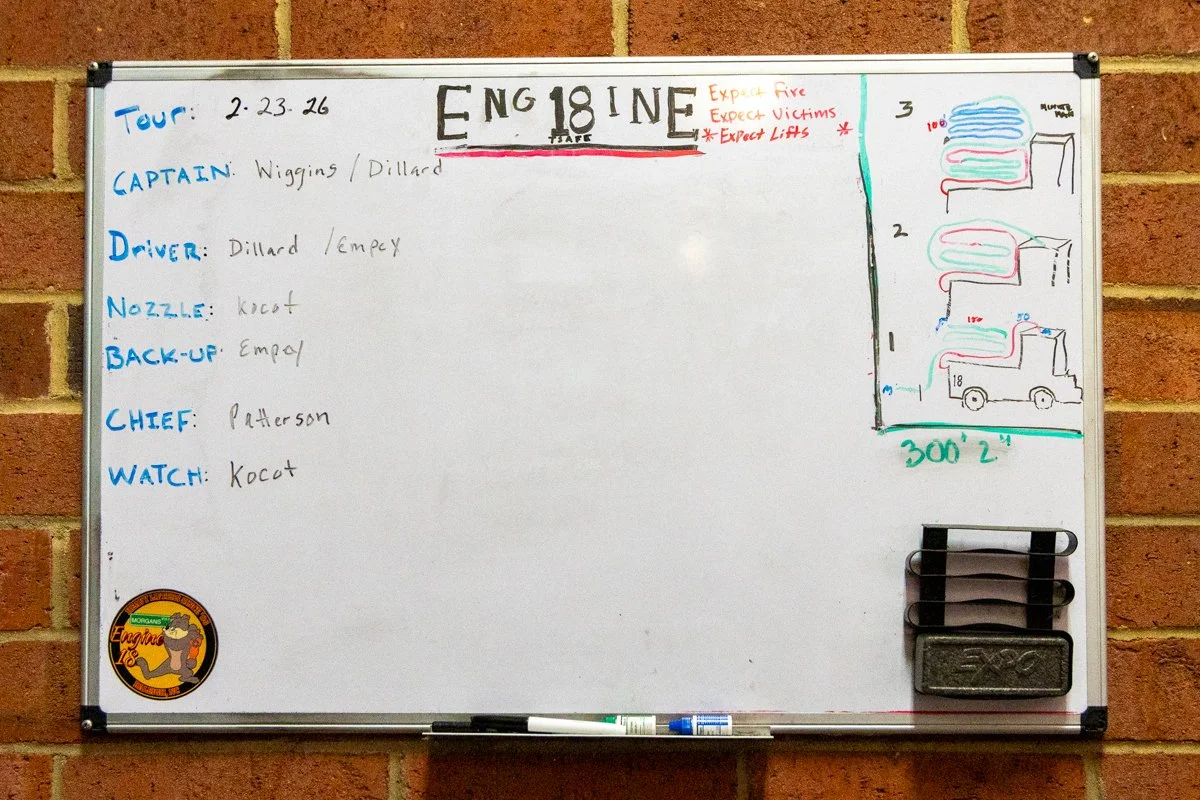 Tour: 2-23-26
ENG 18 INE
Expect Fire
Expect Victims
* Expect Lifts *
CAPTAIN: Wiggins / Dillard
DRIVER: Dillard / Empey
NOZZLE: Kocot
BACK-UP: Empey
CHIEF: Patterson
WATCH: Kocot
3
100'
2
1
100
50
18
300' 2"
MORGANS
Engine
18
EXPO